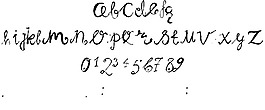 abcdefg
hijklmnopqrstuvxyz
0123456789
. , : ;